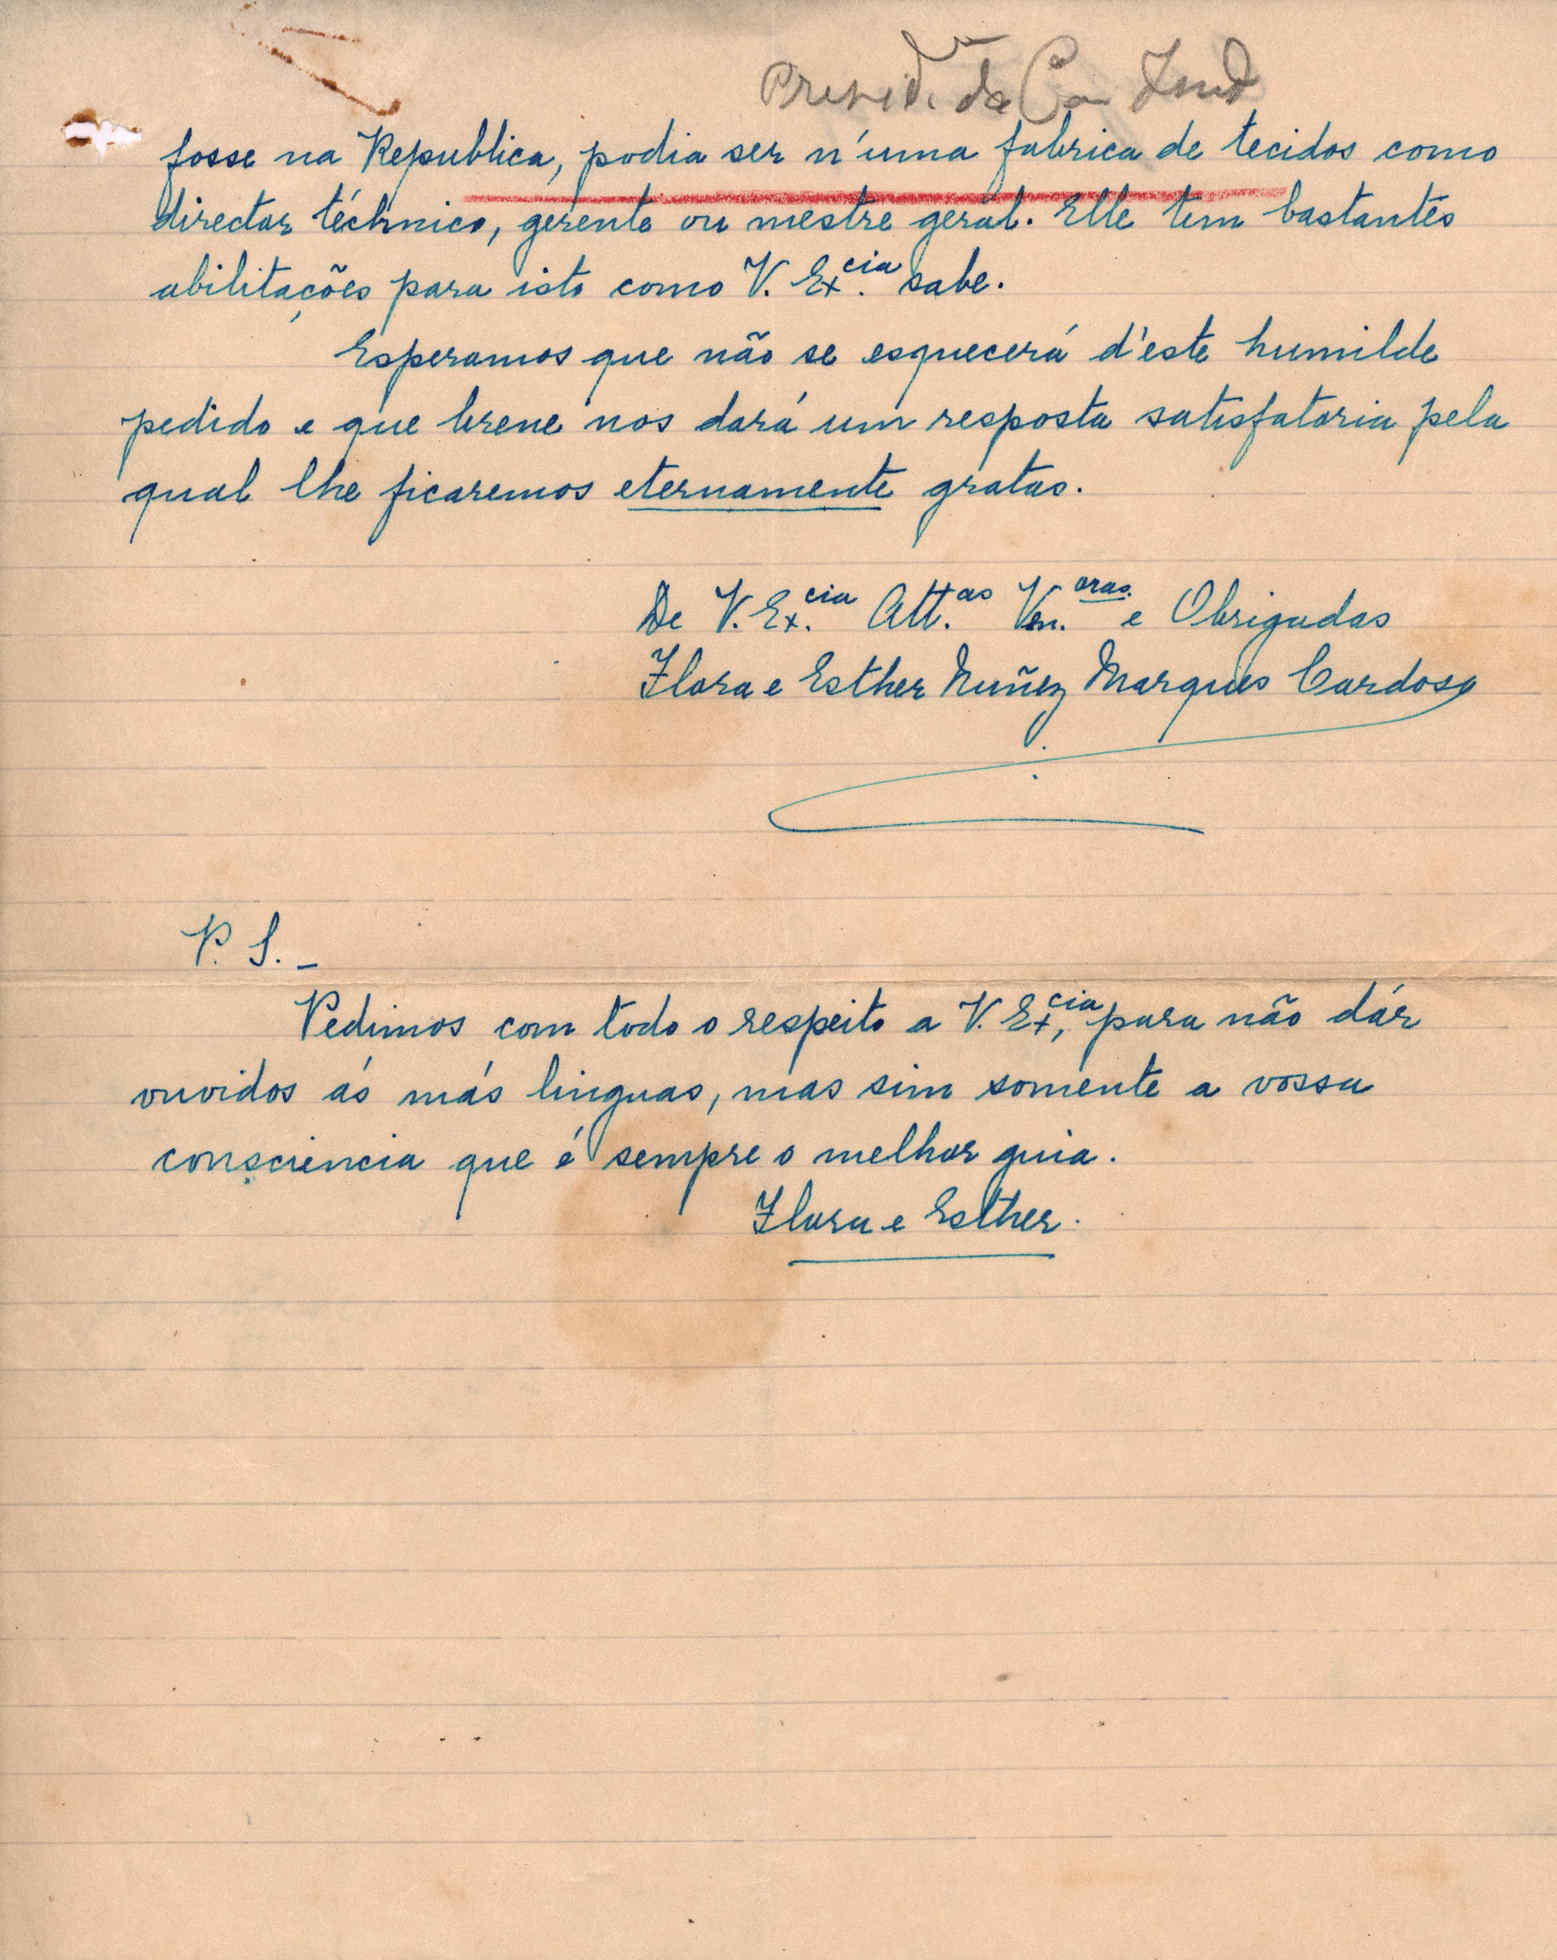 da
fosse na Republica, podia ser n'uma fabrica de tecidos como
director téchnico, gerente ou mestre geral. Elle tem bastantes
abilitações para isto como V. Ex.cia sabe.
Esperamos que não se esquecerá d'este humilde
pedido e que breve nos dará um resposta satisfatoria pela
qual lhe ficaremos eternamente gratas.
De V. Ex.cia Att.as Ven.oras e Obrigadas
Flora e Esther Nuñez Marques Cardoso
P. S. _
Pedimos com todo o respeito a V. Ex,cia para não dár
ouvidos ás más linguas, mas sim somente a vossa
consciencia que é sempre o melhor guia.
Flora e Esther.